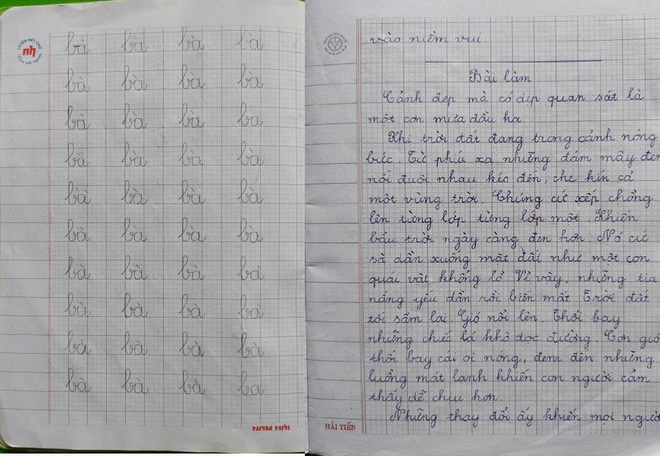 bà bà bà bà
bà bà bà bà
bà bà bà bà
bà bà bà bà
bà bà bà bà
bà bà bà bà
bà bà bà bà
bà bà bà bà
bà bà bà bà
bà bà bà ba
nh
vào niềm vui
Bài làm
Cảnh đẹp mà có dịp quan sát là
một cơn mưa đầu hạ.
Khi trời đất đang trong cảnh nóng
bức. Từ phía xa những đám mây đen
nối đuôi nhau kéo đến, che kín cả
một vùng trời. Chúng cứ xếp chồng
lên từng lớp từng lớp một. Khiến
bầu trời ngày càng đen hơn. Nó cứ
sà dần xuống mặt đất như một con
quái vật khổng lồ. Vì vậy, những tia
nắng yếu dần rồi biến mất. Trời đất
tối sầm lại. Gió nổi lên. Thổi bay
những chiếc lá khô dọc đường. Cơn gió
thổi bay cái oi nóng, đem đến những
luồng mát lạnh khiến con người cảm
thấy dễ chịu hơn.
Những thay đổi ấy khiến mọi người
HẢI TIẾN